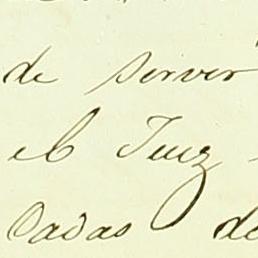 de servir
el Juez
dadas de